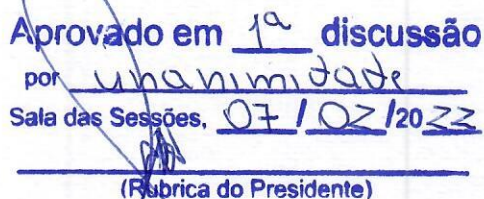 Aprovado em 1ª discussão
por unanimidade
Sala das Sessões, 07 / 02 /2022
(Rubrica do Presidente)